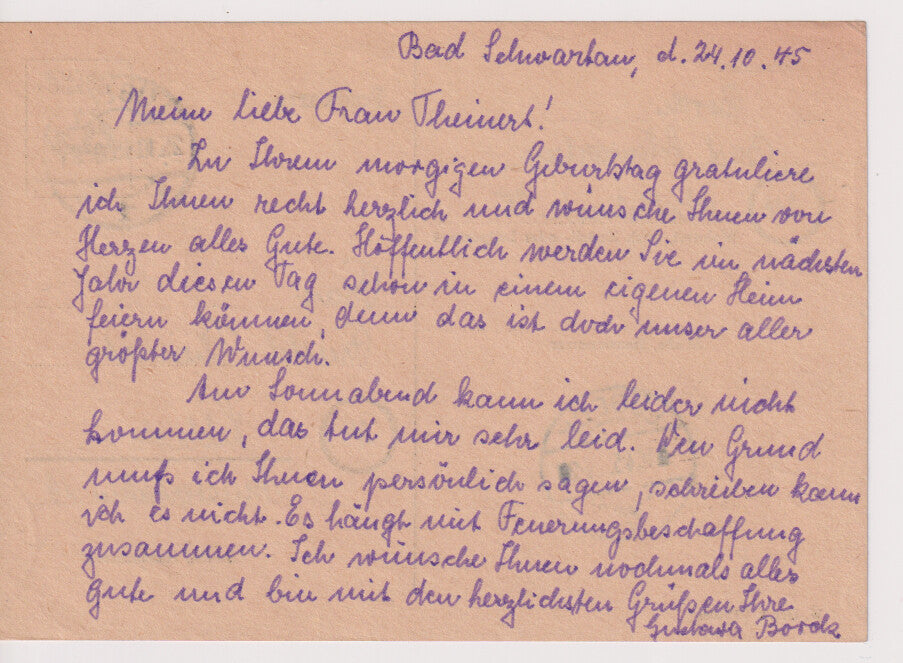 Bad Schwartau, d. 24.10.45
Meine liebe Frau Theinert!
Zu Ihrem morgigen Geburtstag gratuliere
ich Ihnen recht herzlich und wünsche Ihnen von
Herzen alles Gute. Hoffentlich werden Sie im nächsten
Jahr diesen Tag schon in einem eigenen Heim
feiern können, denn das ist doch unser aller
größter Wunsch.
Am Sonnabend kann ich leider nicht
kommen, das tut mir sehr leid. Den Grund
muß ich Ihnen persönlich sagen, schreiben kann
ich es nicht. Es hängt mit Feuerungsbeschaffung
zusammen. Ich wünsche Ihnen nochmals alles
gute und bin mit den herzlichsten Grüßen Ihre